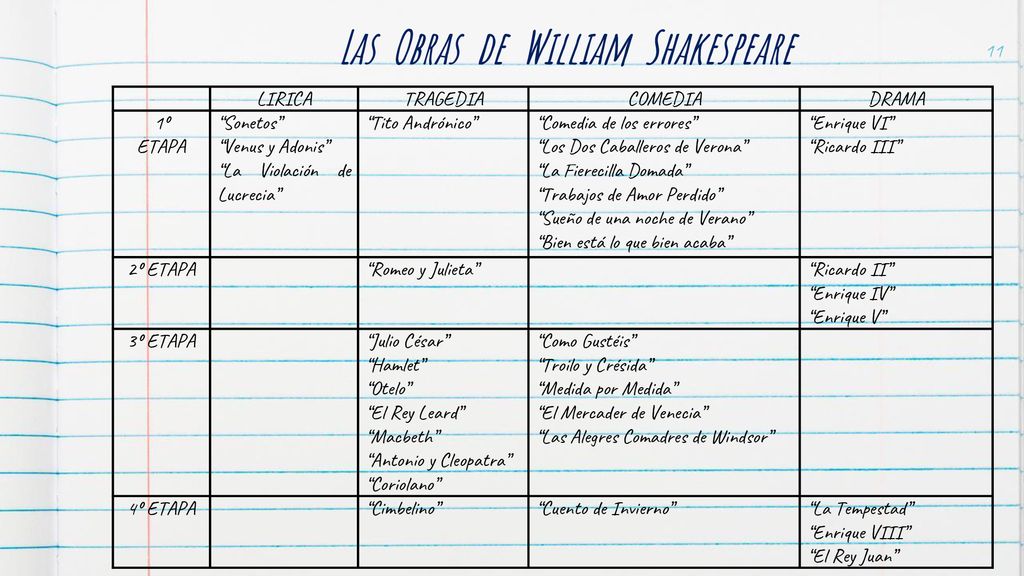 Las Obras de William Shakespeare
11
LIRICA TRAGEDIA COMEDIA DRAMA
1º ETAPA
“Sonetos”
“Venus y Adonis”
“La Violación de
Lucrecia”
“Tito Andrónico”
“Comedia de los errores”
“Los Dos Caballeros de Verona”
“La Fierecilla Domada”
“Trabajos de Amor Perdido”
“Sueño de una noche de Verano”
“Bien está lo que bien acaba”
“Enrique VI”
“Ricardo III”
2º ETAPA
“Romeo y Julieta”
“Ricardo II”
“Enrique IV”
“Enrique V”
3º ETAPA
“Julio César”
“Hamlet”
“Otelo”
“El Rey Leard”
“Macbeth”
“Antonio y Cleopatra”
“Coriolano”
“Como Gustéis”
“Troilo y Crésida”
“Medida por Medida”
“El Mercader de Venecia”
“Las Alegres Comadres de Windsor”
4º ETAPA
“Cimbelino”
“Cuento de Invierno”
“La Tempestad”
“Enrique VIII”
“El Rey Juan”